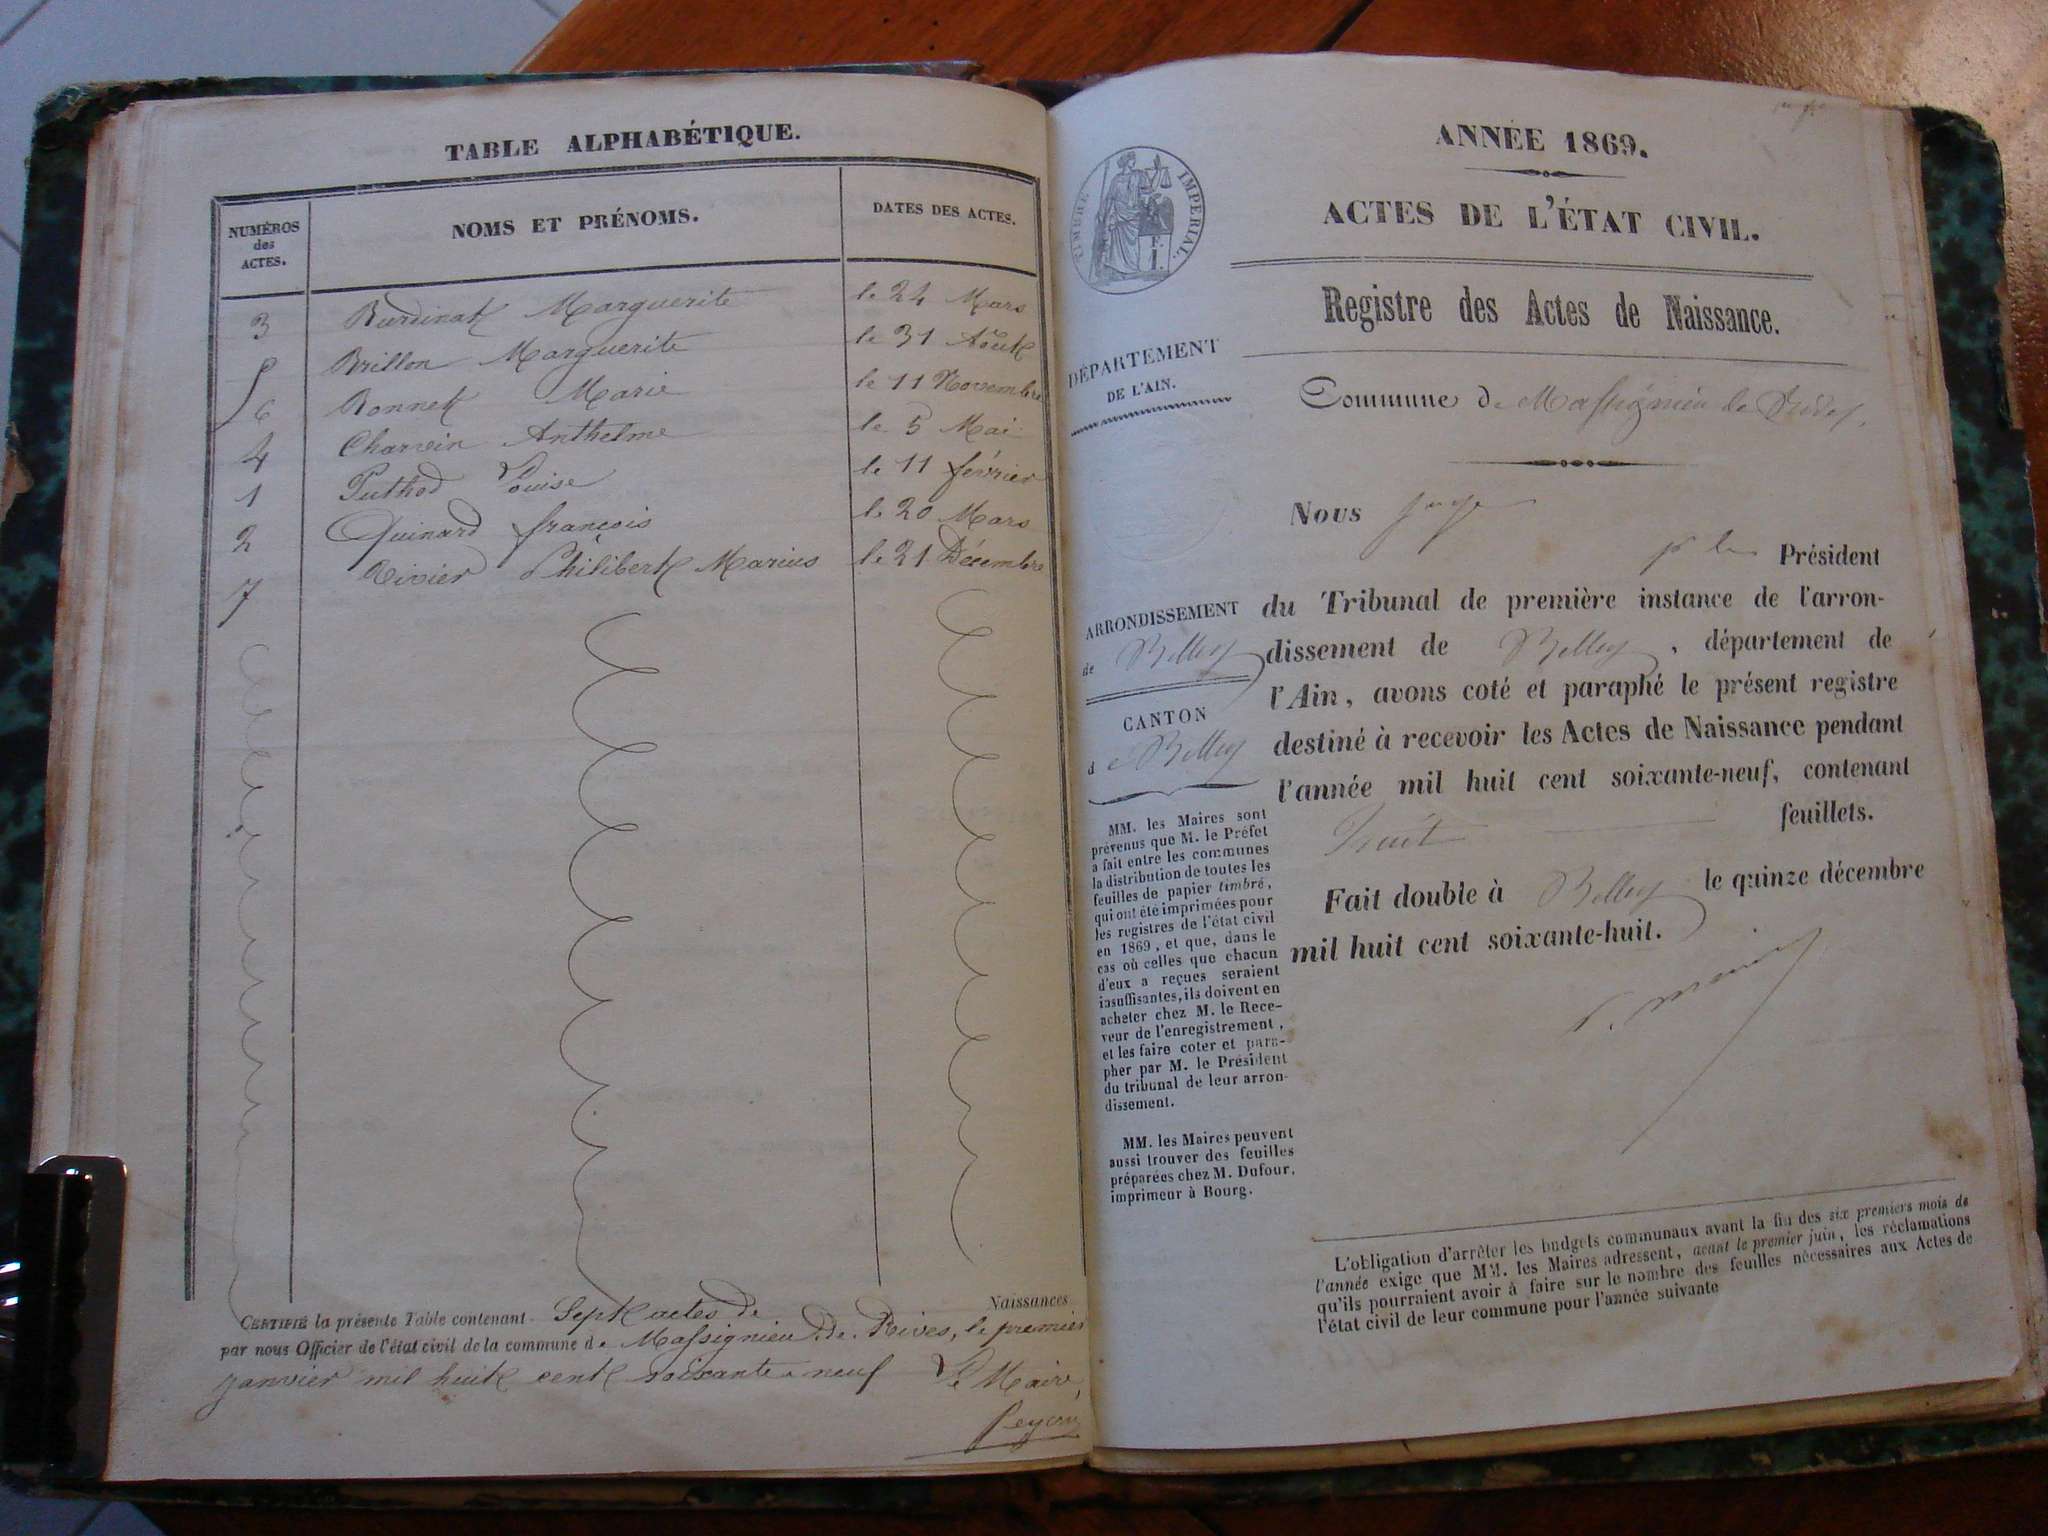 TABLE ALPHABÉTIQUE.
NUMÉROS des ACTES.
NOMS ET PRÉNOMS.
DATES DES ACTES.
3 Burdinat Marguerite le 24 Mars
5 Brillon Marguerite le 31 Août
6 Bonnet Marie le 11 Novembre
4 Charvin Anthelme le 5 Mai
1 Puthod Louise le 11 février
2 Quinard françois le 20 Mars
7 Rivier Philibert Marius le 21 Décembre
CERTIFIÉ la présente Table contenant Sept actes de Naissances
par nous Officier de l'état civil de la commune de Massignieu de Rives, le premier
janvier mil huit cent soixante neuf Le Maire,
ANNÉE 1869.
ACTES DE L'ÉTAT CIVIL.
TIMBRE IMPÉRIAL.
Registre des Actes de Naissance.
DÉPARTEMENT
DE L'AIN.
Commune de Massignieu de Rives.
Nous juge
Président
ARRONDISSEMENT
de Belley
CANTON
de Belley
du Tribunal de première instance de l'arron-
dissement de Belley, département de
l'Ain, avons coté et paraphé le présent registre
destiné à recevoir les Actes de Naissance pendant
l'année mil huit cent soixante-neuf, contenant
huit feuillets.
Fait double à Belley le quinze décembre
mil huit cent soixante-huit.
MM. les Maires sont
prévenus que M. le Préfet
a fait entre les communes
la distribution de toutes les
feuilles de papier timbré,
qui ont été imprimées pour
les registres de l'état civil
en 1869, et que, dans le
cas où celles que chacun
d'eux a reçues seraient
insuffisantes, ils doivent en
acheter chez M. le Rece-
veur de l'enregistrement,
et les faire coter et para-
pher par M. le Président
du tribunal de leur arron-
dissement.
MM. les Maires peuvent
aussi trouver des feuilles
préparées chez M. Dufour,
imprimeur à Bourg.
L'obligation d'arrêter les budgets communaux avant la fin des six premiers mois de
l'année exige que MM. les Maires adressent, avant le premier juin, les réclamations
qu'ils pourraient avoir à faire sur le nombre des feuilles nécessaires aux Actes de
l'état civil de leur commune pour l'année suivante